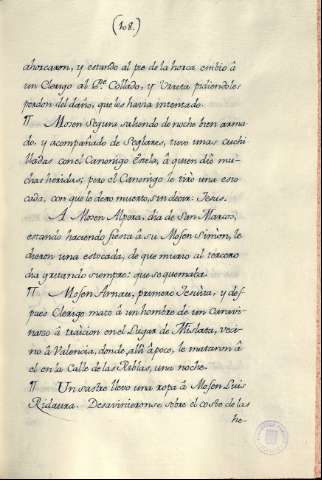 (108.)
ahorcaron, y estando al pie de la horca embio â
un Clerigo al Pe. Collado, y Vireta pidiendoles
perdon del daño, que les havia intentado.
¶ Mosen Segura saliendo de noche bien arma
do, y acompañado de Seglares, tuvo unas cuchi
lladas con el Canonigo Exela, â quien diô mu-
chas heridas; pero el Canonigo le tirò una esto
cada, con que le dexo muerto, sin decir: Jesus.
A Mosen Alpera, dia de San Marcos,
estando haciendo fiesta â su Mosen Simon, le
dieron una estocada, de que murio al tercero
dia gritando siempre: que se quemaba.
¶ Mosen Arnau, primero Jesuita, y des-
pues Clerigo matò â un hombre de un caravi-
nazo â traicion en el Lugar de Mislata, veci-
no â Valencia, donde, allì â poco, le mataron â
el en la Calle de las Roblas, una noche.
¶ Un sastre llevo una ropa â Mosen Luis
Ridaura. Desavinieronse sobre el coste de las
he-